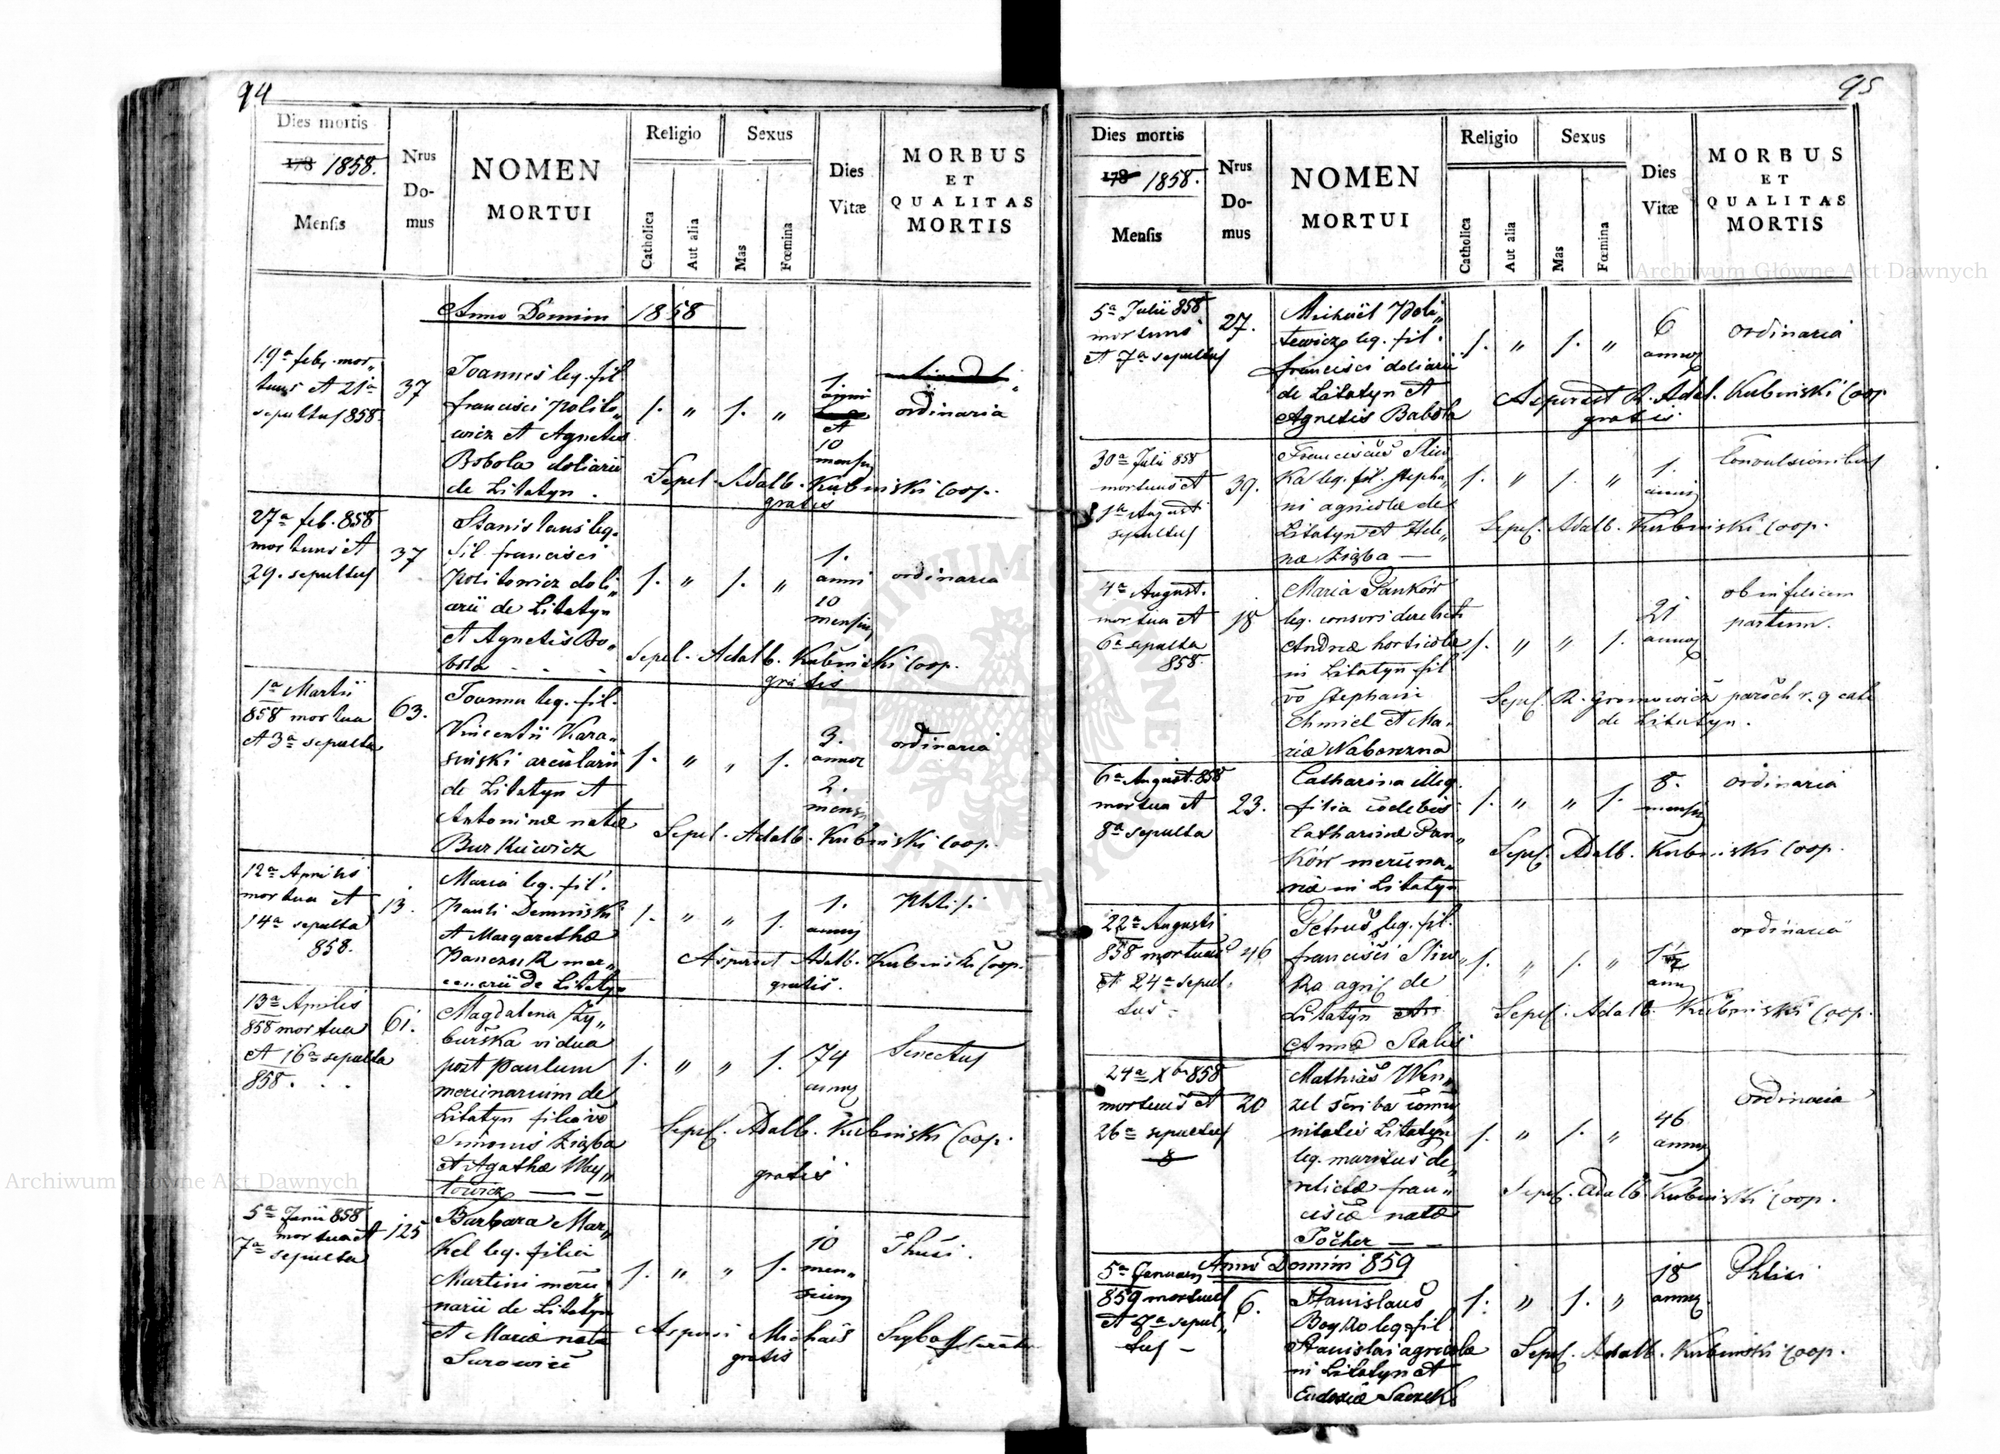 94
Dies mortis
178 1858.
Mensis
Nrus Do-mus
NOMEN
MORTUI
Religio
Catholica
Aut alia
Sexus
Mas
Fœmina
Dies
Vitæ
MORBUS
ET
QUALITAS
MORTIS
Anno Domini 1858
19a feb. mor„
tuus et 21a
sepultus 858.
37
Joannes leg. fil
francisci Polito„
wicz et Agnetis
Bobola doliarii
de Litatyn.
1. „ 1. „
1.
anni
et
10
mensiu
ordinaria
Sepel. Adalb. Kubinski Coop.
gratis
27a feb. 858
mortuus et
29. sepultus
37
Stanislaus leg.
fil. francisci
Politowicz doli„
arii de Litatyn
et Agnetis Bo„
bola
1. „ 1. „
1.
anni
10
mensiu
ordinaria
Sepel. Adalb. Kubinski Coop.
gratis
1a Martii
858 mortua
et 3a sepulta
63.
Joanna leg. fil.
Vincentii Kara„
sinski arcularii
de Litatyn et
Antoninæ natæ
Burkiewicz
1. „ „ 1.
3.
annor
2.
mensiu
ordinaria
Sepel. Adalb. Kubinski Coop.
12a Aprilis
mortua et
14a sepulta
858.
13.
Maria leg. fil.
Pauli Deminski
et Margarethæ
Panczuk mer„
cenarii de Litatyn
1. „ „ 1.
1.
anni
Phtisi
Aspersit Adalb. Kubinski Coop.
gratis.
13a Aprilis
858 mortua
et 16a sepulta
858.
61.
Magdalena
vidua
post Paulum
mercinarium de
Litatyn filia vo
Simonis Zięba
et Agathæ
1. „ „ 1.
74
anny
Senectus
Sepel. Adalb. Kubinski Coop.
gratis
5a Junii 858
mortua et
7a sepulta
125
Barbara Mar„
kel leg. filia
Martini merci„
narii de Litatyn
et Mariæ nata
Surowicz
1. „ „ 1.
10
men„
sium
Thusi.
Aspersi Michaël
gratis
95
Dies mortis
178 1858.
Mensis
Nrus Do-mus
NOMEN
MORTUI
Religio
Catholica
Aut alia
Sexus
Mas
Fœmina
Dies
Vitæ
MORBUS
ET
QUALITAS
MORTIS
5a Julii 858
mortuus
et 7a sepultus
27.
Michaël Poli„
towicz leg. fil.
francisci doliarii
de Litatyn et
Agnetis Bobola
1. „ 1. „
6
annor
ordinaria
Aspersit R. Adal. Kubinski Coop
gratis
30a Julii 858
mortuus et
1a Augusti
sepultus
39.
Franciscus Sliw
ka leg. fil. Stepha„
ni agricolæ de
Litatyn et Hele„
næ Zięba —
1. „ 1. „
1.
anni
Convulsionibus
Sepel. Adalb. Kubinski Coop.
4a August.
mortua et
6a sepulta
858.
18
Maria Panków
leg. consors derelicti
Andreæ horticolæ
in Litatyn fil
vo Stephani
Chmiel et Ma„
riæ Nabanna
1. „ „ 1.
21
annor
ob infelicem
partum.
Sepel. R. Gromowicz paroch r. g cath
de Litatyn.
6a August. 858
mortua et
8a sepulta
23.
Catharina illeg.
filia cœlebis
Catharinæ Pan„
ków mercina„
riæ in Litatyn
1. „ „ 1.
8.
mensiu
ordinaria
Sepel. Adalb. Kubinski Coop.
22a Augusti
858 mortuus
et 24a sepul„
tus -
46
Petrus leg. fil.
francisci Sliw„
ka agric de
Litatyn et
Annæ
1. „ 1. „
ann
ordinaria
Sepel. Adalb. Kubinski Coop.
24a Xbr 858
mortuus et
26a sepultus
20
Mathias Wen„
zel scriba comu
nitatis Litatyn
leg. maritus de„
relictæ fran„
ciscæ natæ
Pocher —
1. „ 1. „
46
annor
ordinaria
Sepel. Adalb. Kubinski Coop.
Anno Domini 859
5a Januarii
859 mortuus
et 7a sepul„
tus -
6.
Stanislaus
Boyko leg. fil
Stanislai agricolæ
in Litatyn et
Eudoxiæ
1. „ 1. „
18
annor
Phtisi
Sepel. Adalb. Kubinski Coop.
Archiwum Główne Akt Dawnych
Archiwum Główne Akt Dawnych